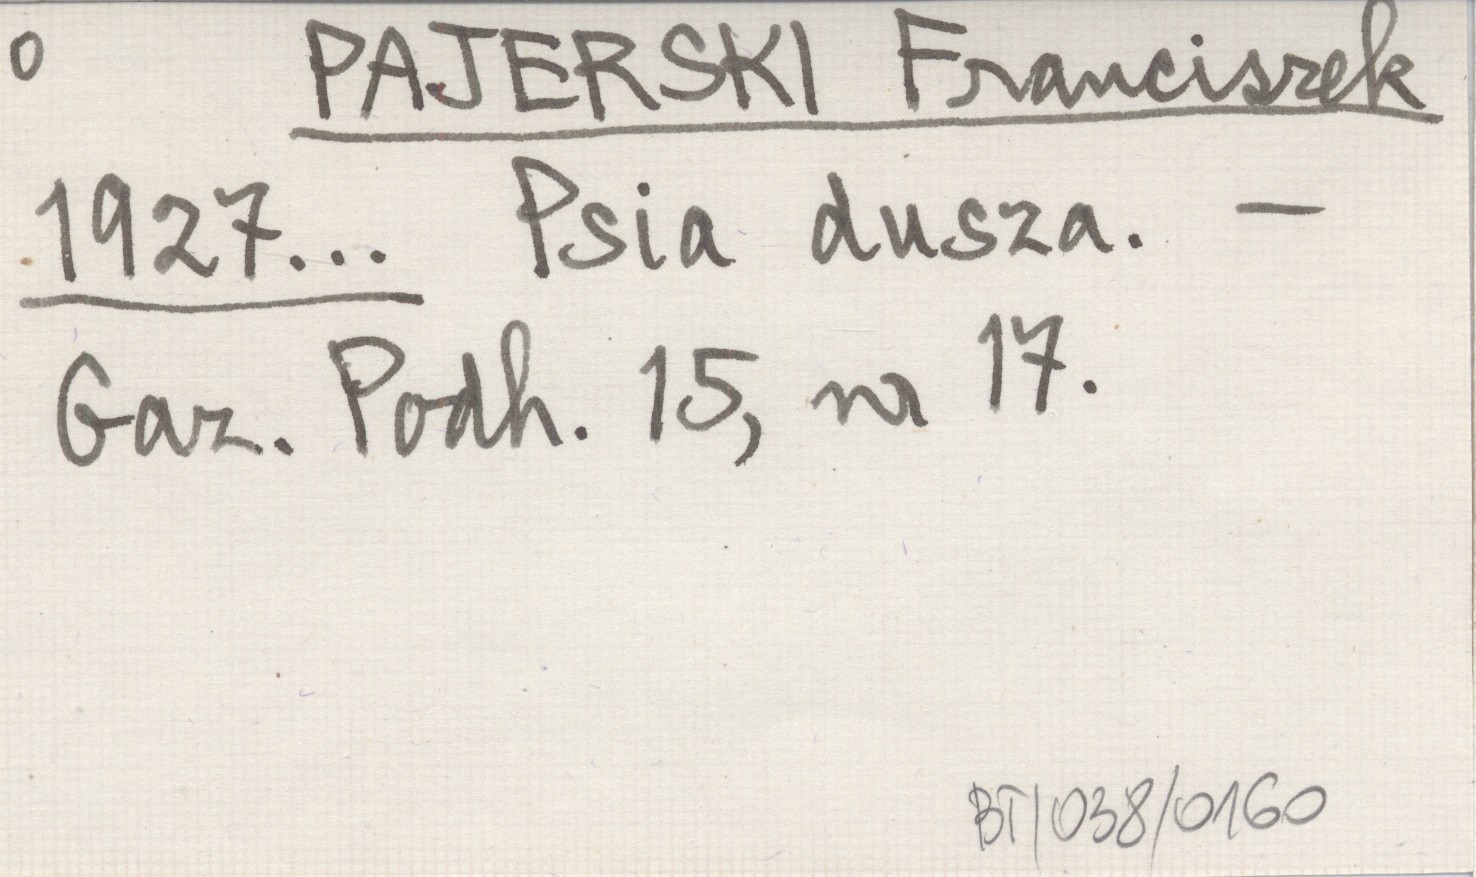 o PAJERSKI Franciszek
1927... Psia dusza. —
Gaz. Podh. 15, nr 17.
BT/038/0160